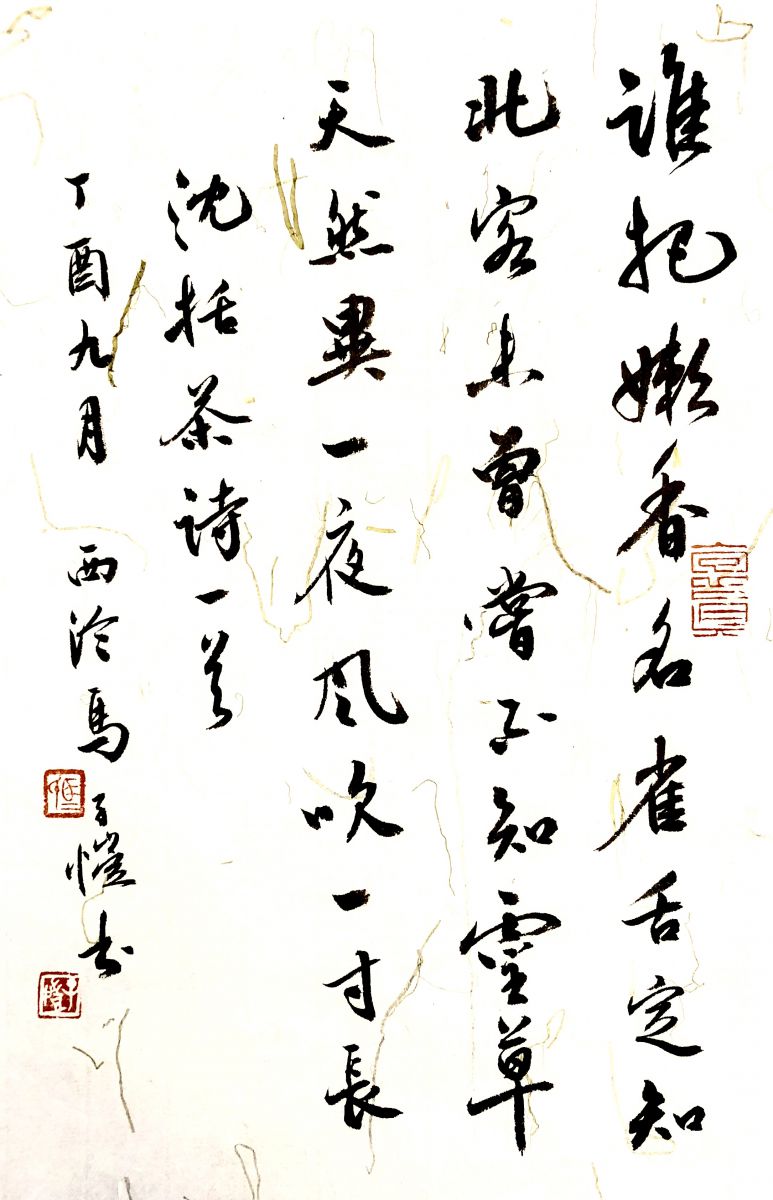 誰把嫩香名雀舌定知
北客未曾嘗不知靈草
天然異一夜風吹一寸長
沈括茶詩一首
丁酉九月 西泠馬子愷書